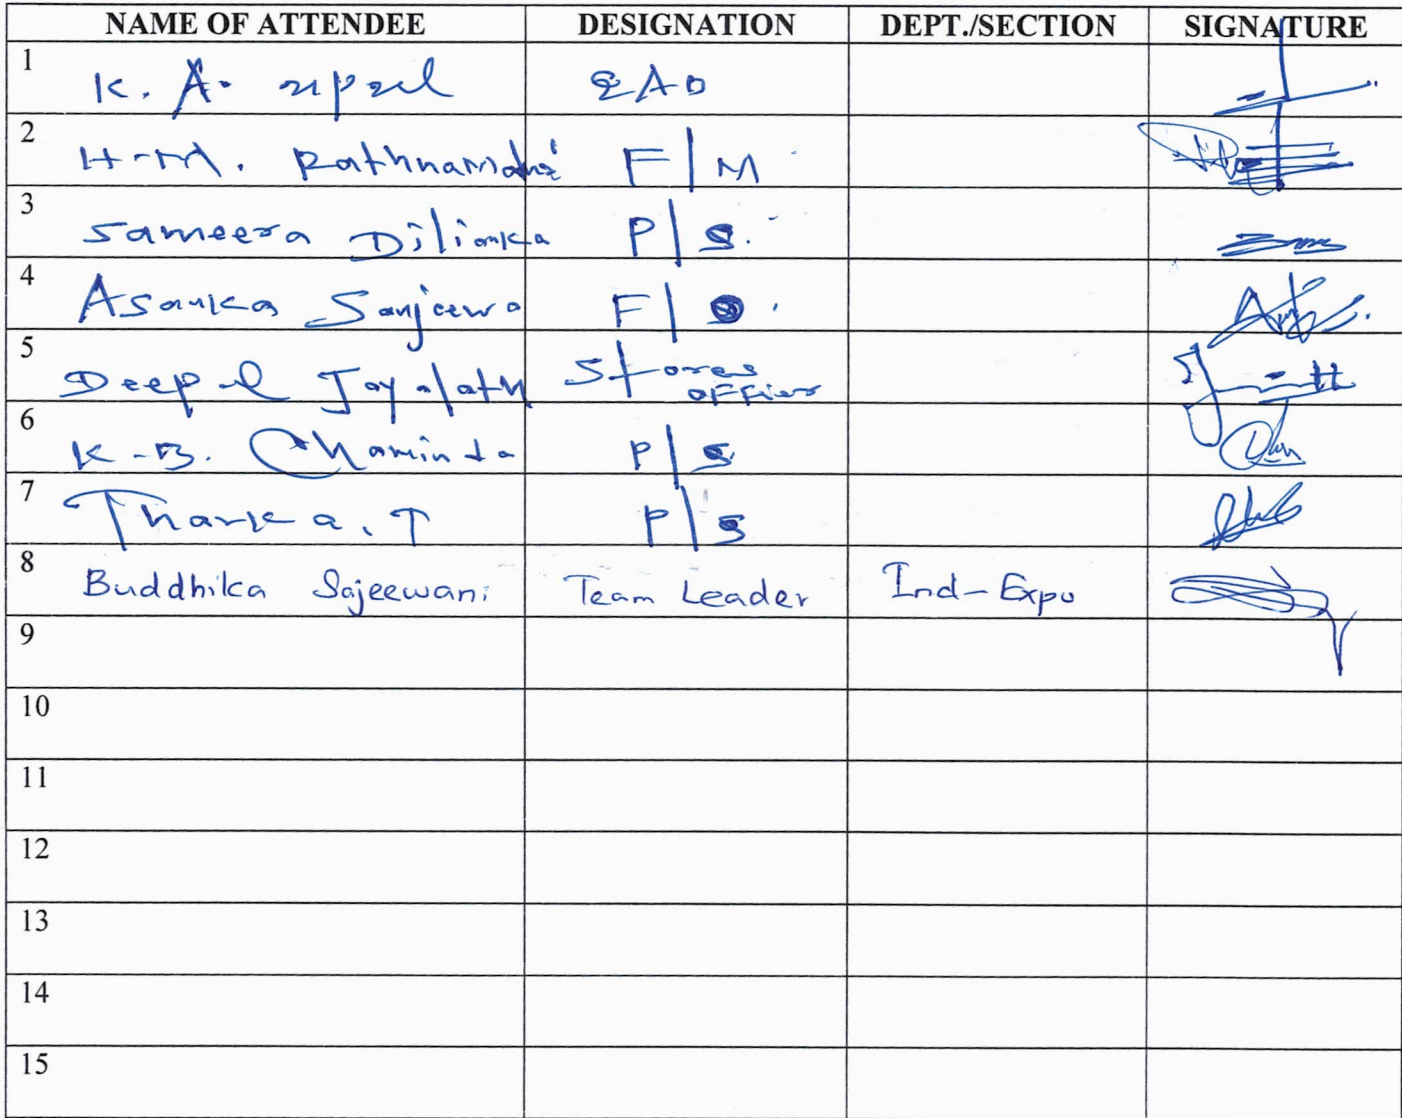 NAME OF ATTENDEE DESIGNATION DEPT./SECTION SIGNATURE
1 K. A. EAO
2 H-M. F/M
3 Sameera Dilianka P/S.
4 Asanka Sanjeewa F/S
5 Deepal Jayalath Stores officer
6 K-B. Chaminda P/S
7 Tharka. T P/S
8 Buddhika Sajeewani Team Leader Ind-Expo
9
10
11
12
13
14
15